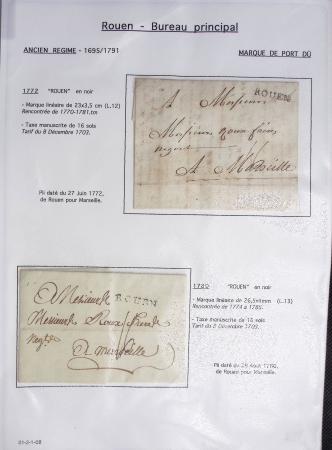 Rouen - Bureau principal
ANCIEN REGIME - 1695/1791
MARQUE DE PORT DÛ
1772 "ROUEN" en noir
- Marque linéaire de 23x3,5 cm (L.12)
Rencontrée de 1770-1781.
- Taxe manuscrite de 16 sols
Tarif du 8 Décembre 1703.
Pli daté du 27 Juin 1772,
de Rouen pour Marseille.
ROUEN
A Monsieur
Monsieur Roux frères
negot
A Marseille
1780 "ROUEN" en noir
- Marque linéaire de 26,5x4mm (L.13)
Rencontrée de 1774 à 1785.
- Taxe manuscrite de 16 sols
Tarif du 8 Décembre 1703.
Pli daté du 29 Août 1780,
de Rouen pour Marseille.
ROUEN
Messieurs
Messieurs Roux freres
Negts
A Marseille